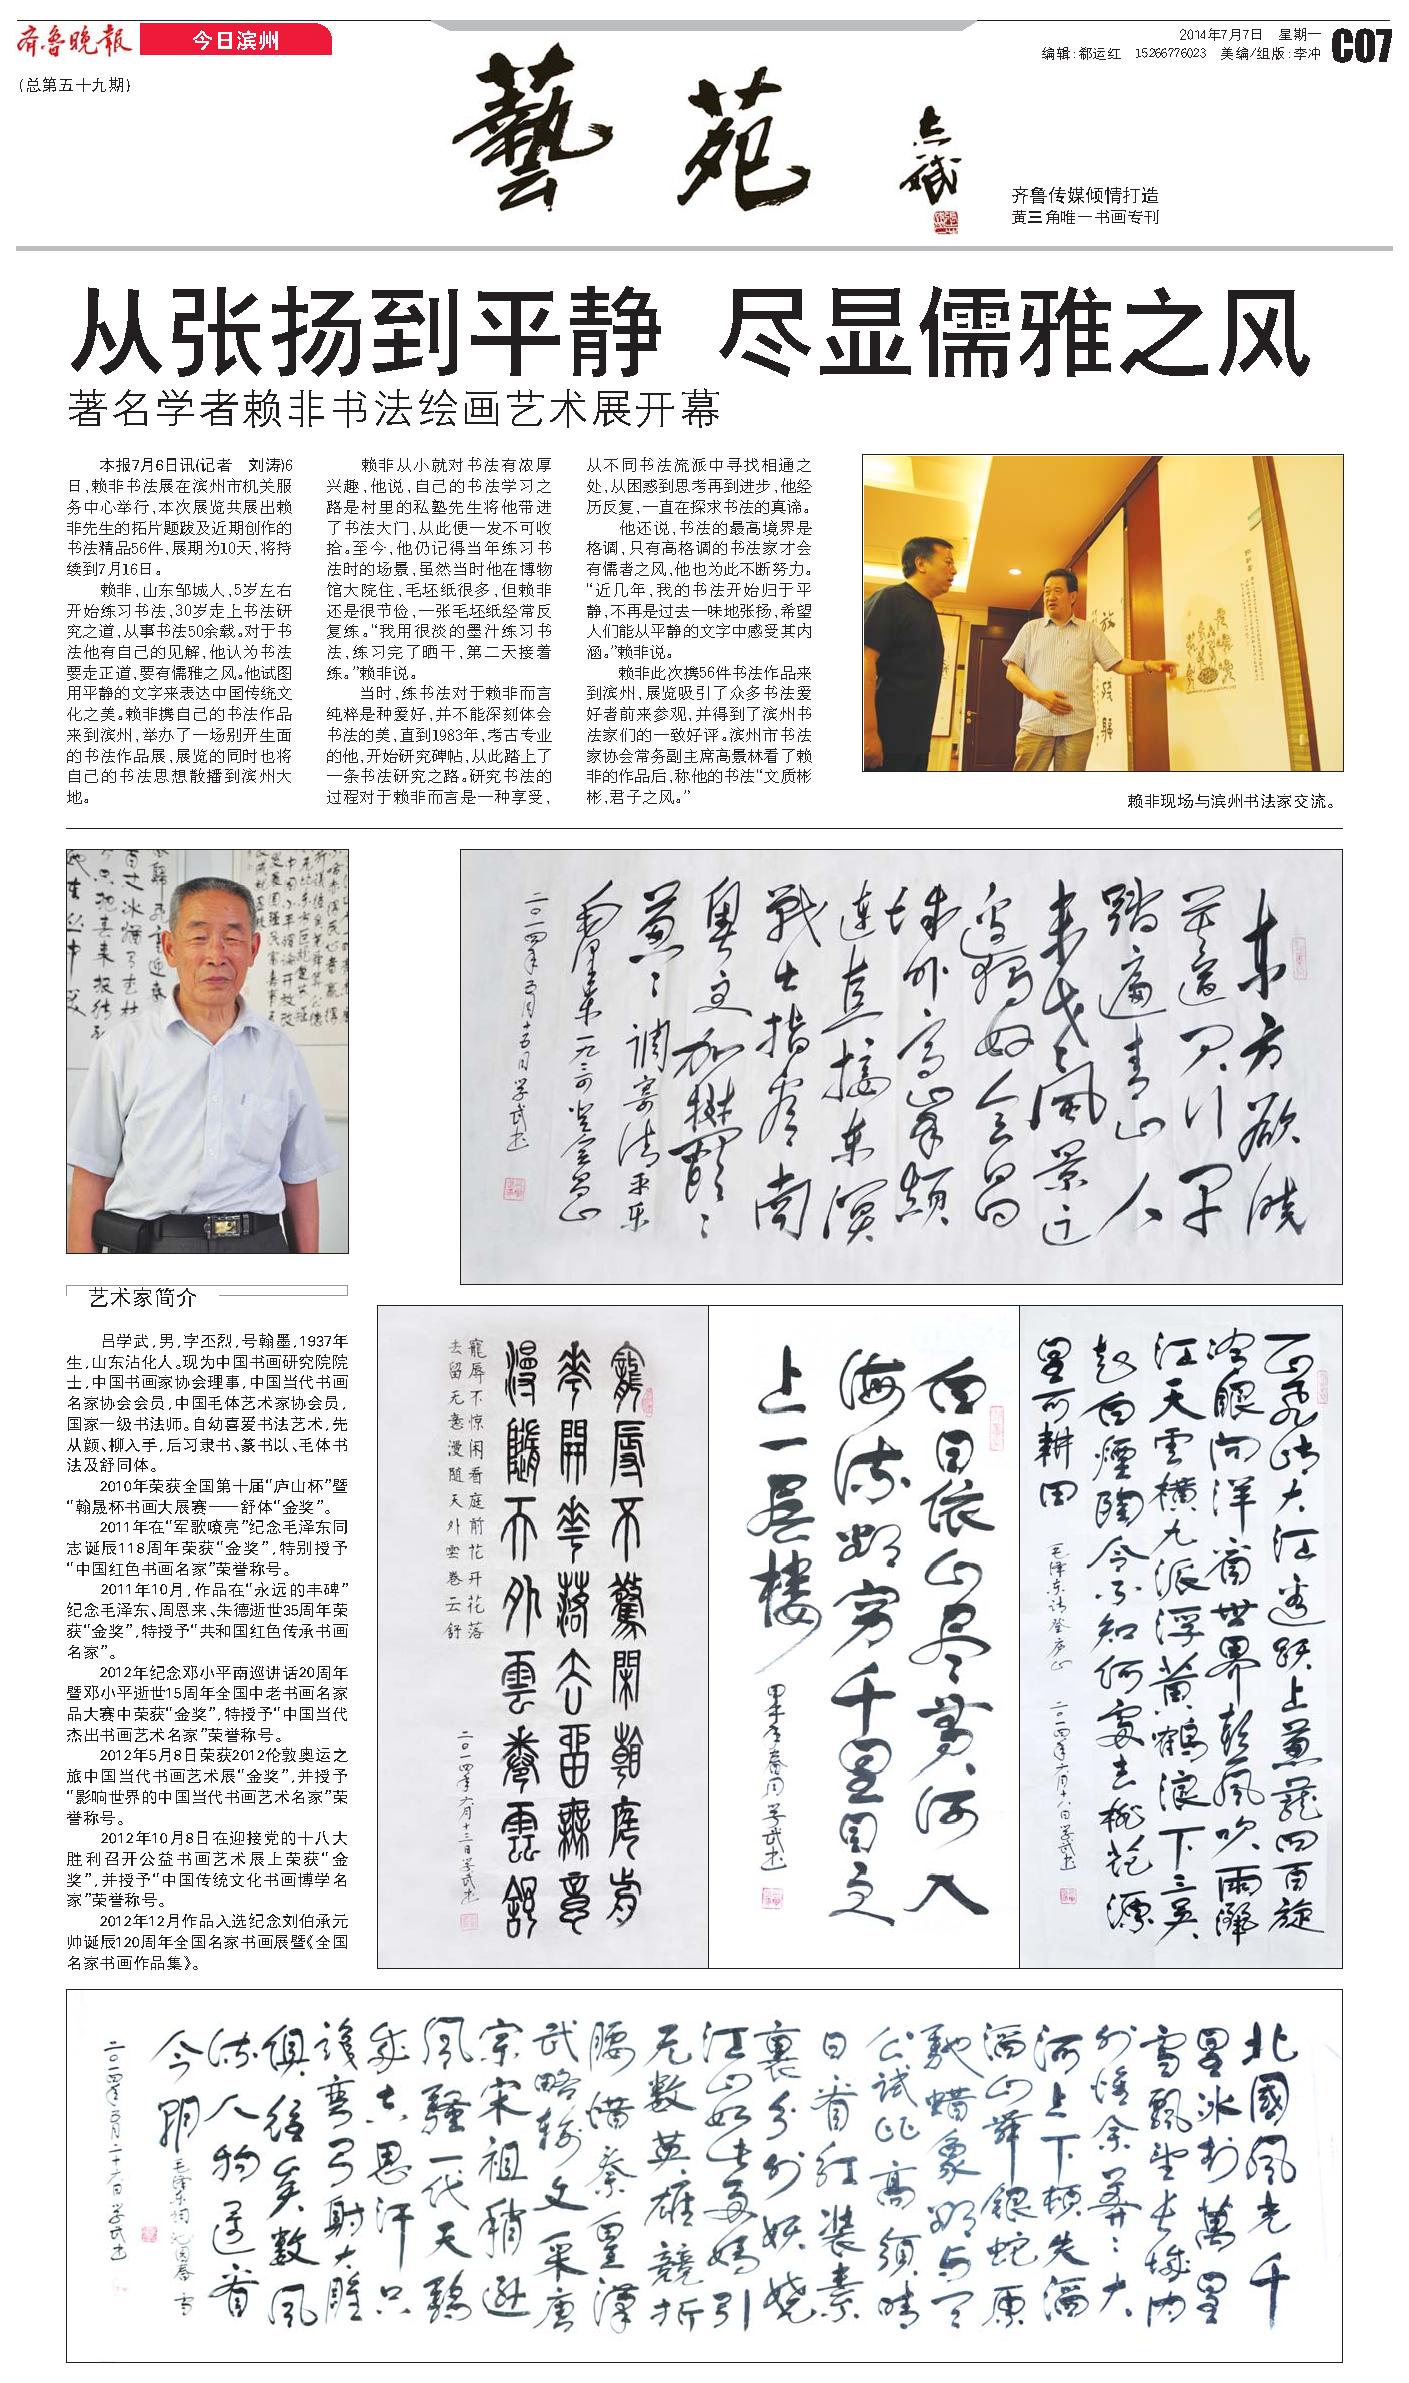 齐鲁晚报
今日滨州
(总第五十九期)
藝苑
2014年7月7日 星期一
编辑:郗运红 15266776023 美编/组版:李冲
C07
齐鲁传媒倾情打造
黄三角唯一书画专刊
从张扬到平静 尽显儒雅之风
著名学者赖非书法绘画艺术展开幕
本报7月6日讯(记者 刘涛)6
日,赖非书法展在滨州市机关服
务中心举行,本次展览共展出赖
非先生的拓片题跋及近期创作的
书法精品56件,展期为10天,将持
续到7月16日。
赖非,山东邹城人,5岁左右
开始练习书法,30岁走上书法研
究之道,从事书法50余载。对于书
法他有自己的见解,他认为书法
要走正道,要有儒雅之风。他试图
用平静的文字来表达中国传统文
化之美。赖非携自己的书法作品
来到滨州,举办了一场别开生面
的书法作品展,展览的同时也将
自己的书法思想散播到滨州大
地。
赖非从小就对书法有浓厚
兴趣,他说,自己的书法学习之
路是村里的私塾先生将他带进
了书法大门,从此便一发不可收
拾。至今,他仍记得当年练习书
法时的场景,虽然当时他在博物
馆大院住,毛坯纸很多,但赖非
还是很节俭,一张毛坯纸经常反
复练。“我用很淡的墨汁练习书
法,练习完了晒干,第二天接着
练。”赖非说。
当时,练书法对于赖非而言
纯粹是种爱好,并不能深刻体会
书法的美,直到1983年,考古专业
的他,开始研究碑帖,从此踏上了
一条书法研究之路。研究书法的
过程对于赖非而言是一种享受,
从不同书法流派中寻找相通之
处,从困惑到思考再到进步,他经
历反复,一直在探求书法的真谛。
他还说,书法的最高境界是
格调,只有高格调的书法家才会
有儒者之风,他也为此不断努力。
“近几年,我的书法开始归于平
静,不再是过去一味地张扬,希望
人们能从平静的文字中感受其内
涵。”赖非说。
赖非此次携56件书法作品来
到滨州,展览吸引了众多书法爱
好者前来参观,并得到了滨州书
法家们的一致好评。滨州市书法
家协会常务副主席高景林看了赖
非的作品后,称他的书法“文质彬
彬,君子之风。”
赖非现场与滨州书法家交流。
艺术家简介
吕学武,男,字丕烈,号翰墨,1937年
生,山东沾化人。现为中国书画研究院院
士,中国书画家协会理事,中国当代书画
名家协会会员,中国毛体艺术家协会员,
国家一级书法师。自幼喜爱书法艺术,先
从颜、柳入手,后习隶书、篆书以、毛体书
法及舒同体。
2010年荣获全国第十届“庐山杯”暨
“翰晟杯书画大展赛——舒体“金奖”。
2011年在“军歌嘹亮”纪念毛泽东同
志诞辰118周年荣获“金奖”,特别授予
“中国红色书画名家”荣誉称号。
2011年10月,作品在“永远的丰碑”
纪念毛泽东、周恩来、朱德逝世35周年荣
获“金奖”,特授予“共和国红色传承书画
名家”。
2012年纪念邓小平南巡讲话20周年
暨邓小平逝世15周年全国中老书画名家
品大赛中荣获“金奖”,特授予“中国当代
杰出书画艺术名家”荣誉称号。
2012年5月8日荣获2012伦敦奥运之
旅中国当代书画艺术展“金奖”,并授予
“影响世界的中国当代书画艺术名家”荣
誉称号。
2012年10月8日在迎接党的十八大
胜利召开公益书画艺术展上荣获“金
奖”,并授予“中国传统文化书画博学名
家”荣誉称号。
2012年12月作品入选纪念刘伯承元
帅诞辰120周年全国名家书画展暨《全国
名家书画作品集》。
东方欲晓
莫道君行早
踏遍青山人
未老风景这
边独好会昌
城外高峰颠
连直接东溟
战士指看南
粤更加郁郁
葱葱 调寄清平乐
二〇一四年五月十五日学武书
寵辱不驚閑看庭前
花開花落去留無意
漫隨天外雲卷雲舒
寵辱不惊闲看庭前花开花落
去留无意漫随天外雲卷云舒
二〇一四年六月十三日学武书
白日依山尽黄河入
海流欲穷千里目更
上一层楼
学武书
一山飞峙大江边跃上葱茏四百旋
冷眼向洋看世界热风吹雨洒
江天云横九派浮黄鹤浪下三吴
起白烟陶令不知何处去桃花源
里可耕田
毛泽东诗登庐山 二〇一四年六月十八日学武书
北國風光千
里冰封萬里
雪飘望长城内
外惟余莽莽大
河上下顿失滔
滔山舞银蛇原
驰蜡象欲与天
公试比高须晴
日看红装素
裹分外妖娆
江山如此多娇引
无数英雄竞折
腰惜秦皇汉
武略输文采唐
宗宋祖稍逊
风骚一代天骄
成吉思汗只
识弯弓射大雕
俱往矣数风
流人物还看
今朝 毛泽东词沁园春雪
二〇一四年五月二十六日学武书